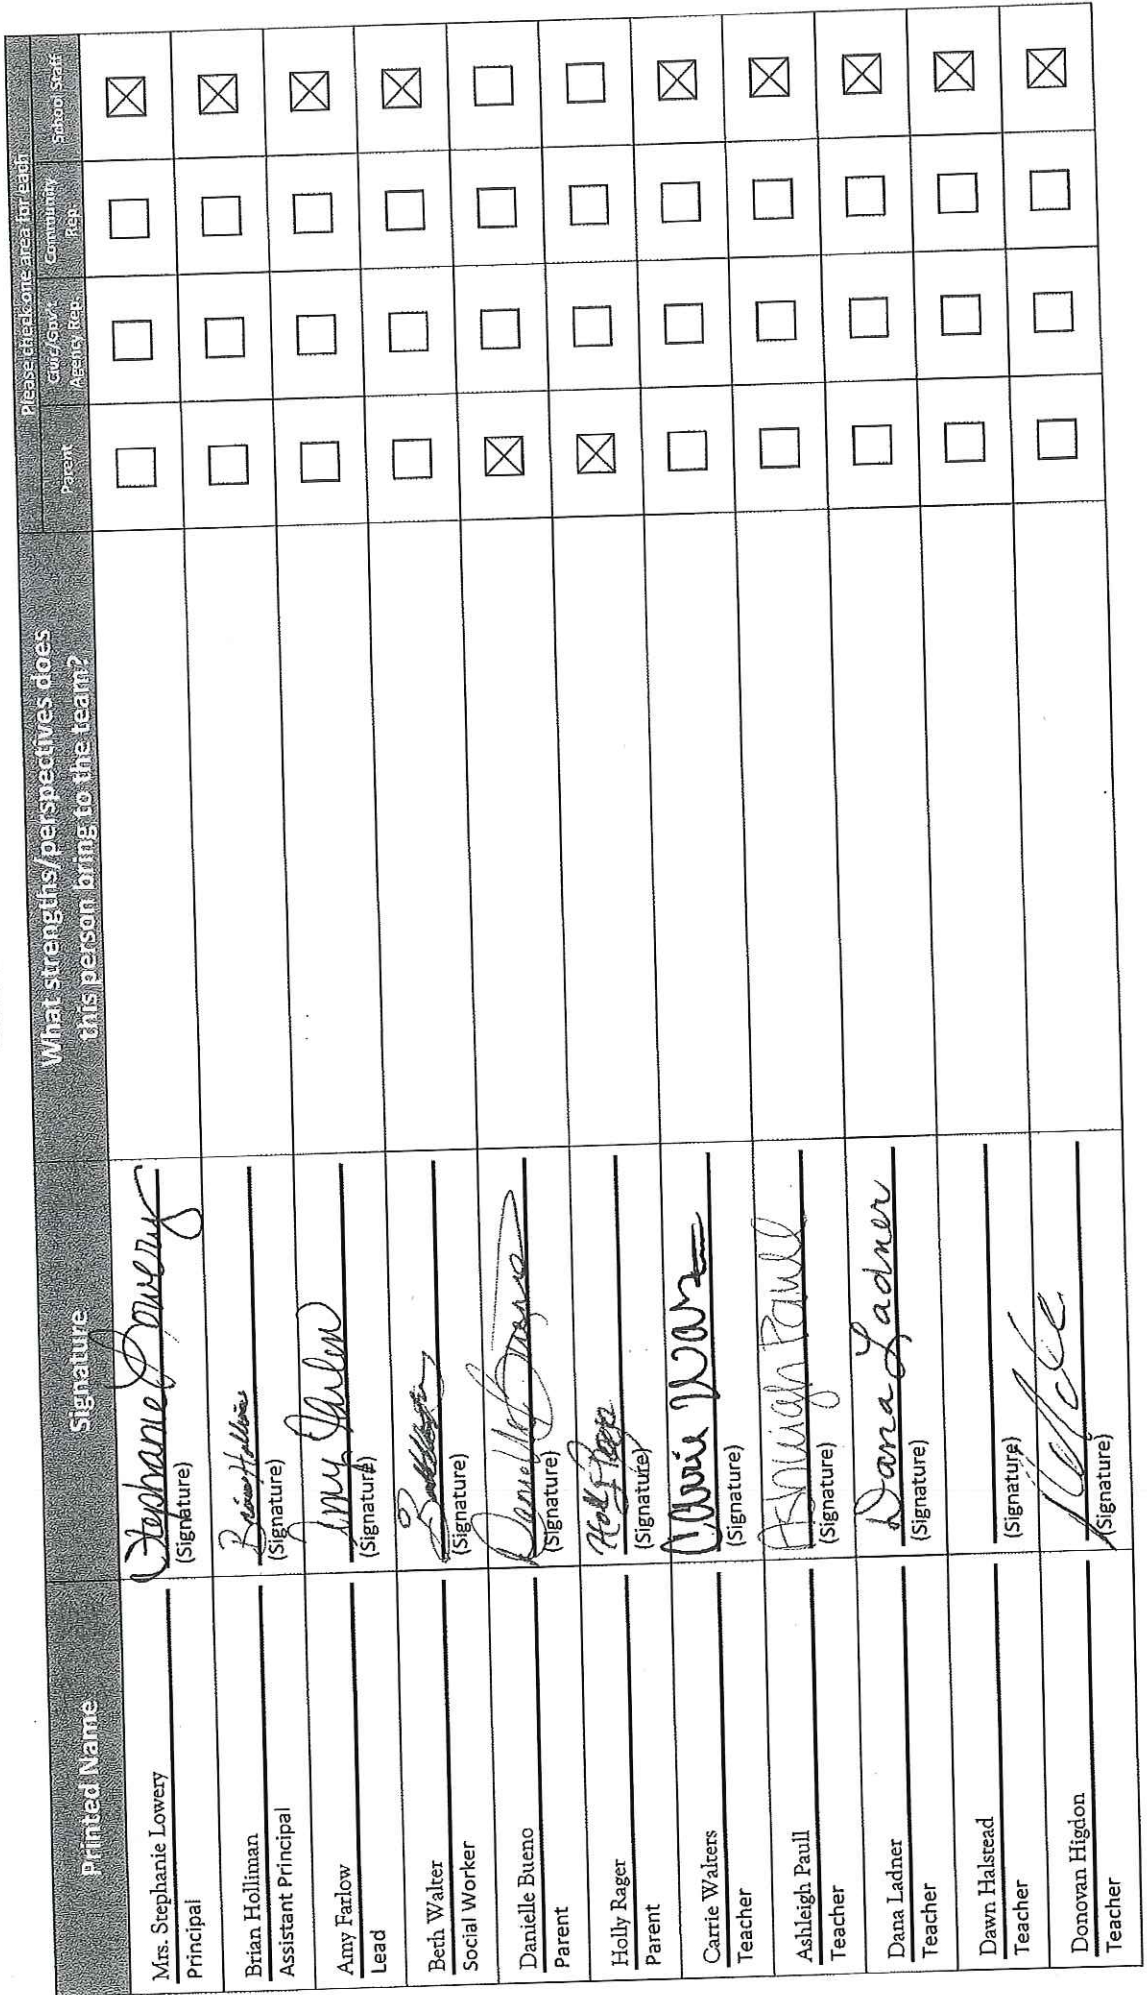 Printed Name
Signature
What strengths/perspectives does
this person bring to the team?
Please check one area for each
Parent
Civic/Gov't
Agency Rep.
Community
Rep.
School Staff
Mrs. Stephanie Lowery
Principal
Stephanie Lowery
(Signature)
Brian Holliman
Assistant Principal
Brian Holliman
(Signature)
Amy Farlow
Lead
Amy Farlow
(Signature)
Beth Walter
Social Worker
(Signature)
Danielle Bueno
Parent
Danielle Bueno
(Signature)
Holly Rager
Parent
Holly Rager
(Signature)
Carrie Walters
Teacher
Carrie
(Signature)
Ashleigh Paull
Teacher
Ashleigh Paull
(Signature)
Dana Ladner
Teacher
Dana Ladner
(Signature)
Dawn Halstead
Teacher
(Signature)
Donovan Higdon
Teacher
(Signature)